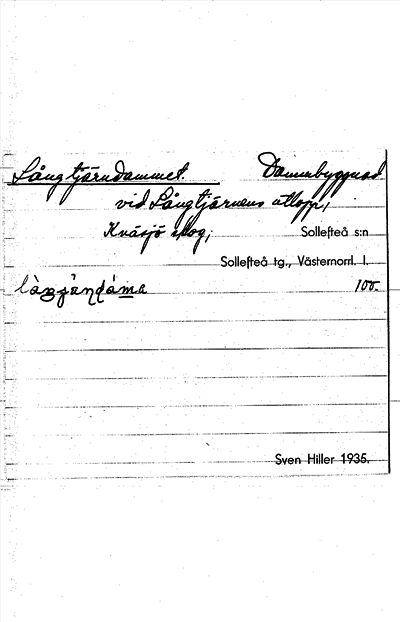 Långtjärndammet. Dammbyggnad
vid Långtjärnens utlopp,
Kväsjö skog, Sollefteå s:n
Sollefteå tg., Västernorrl. l.
100.
Sven Hiller 1935.